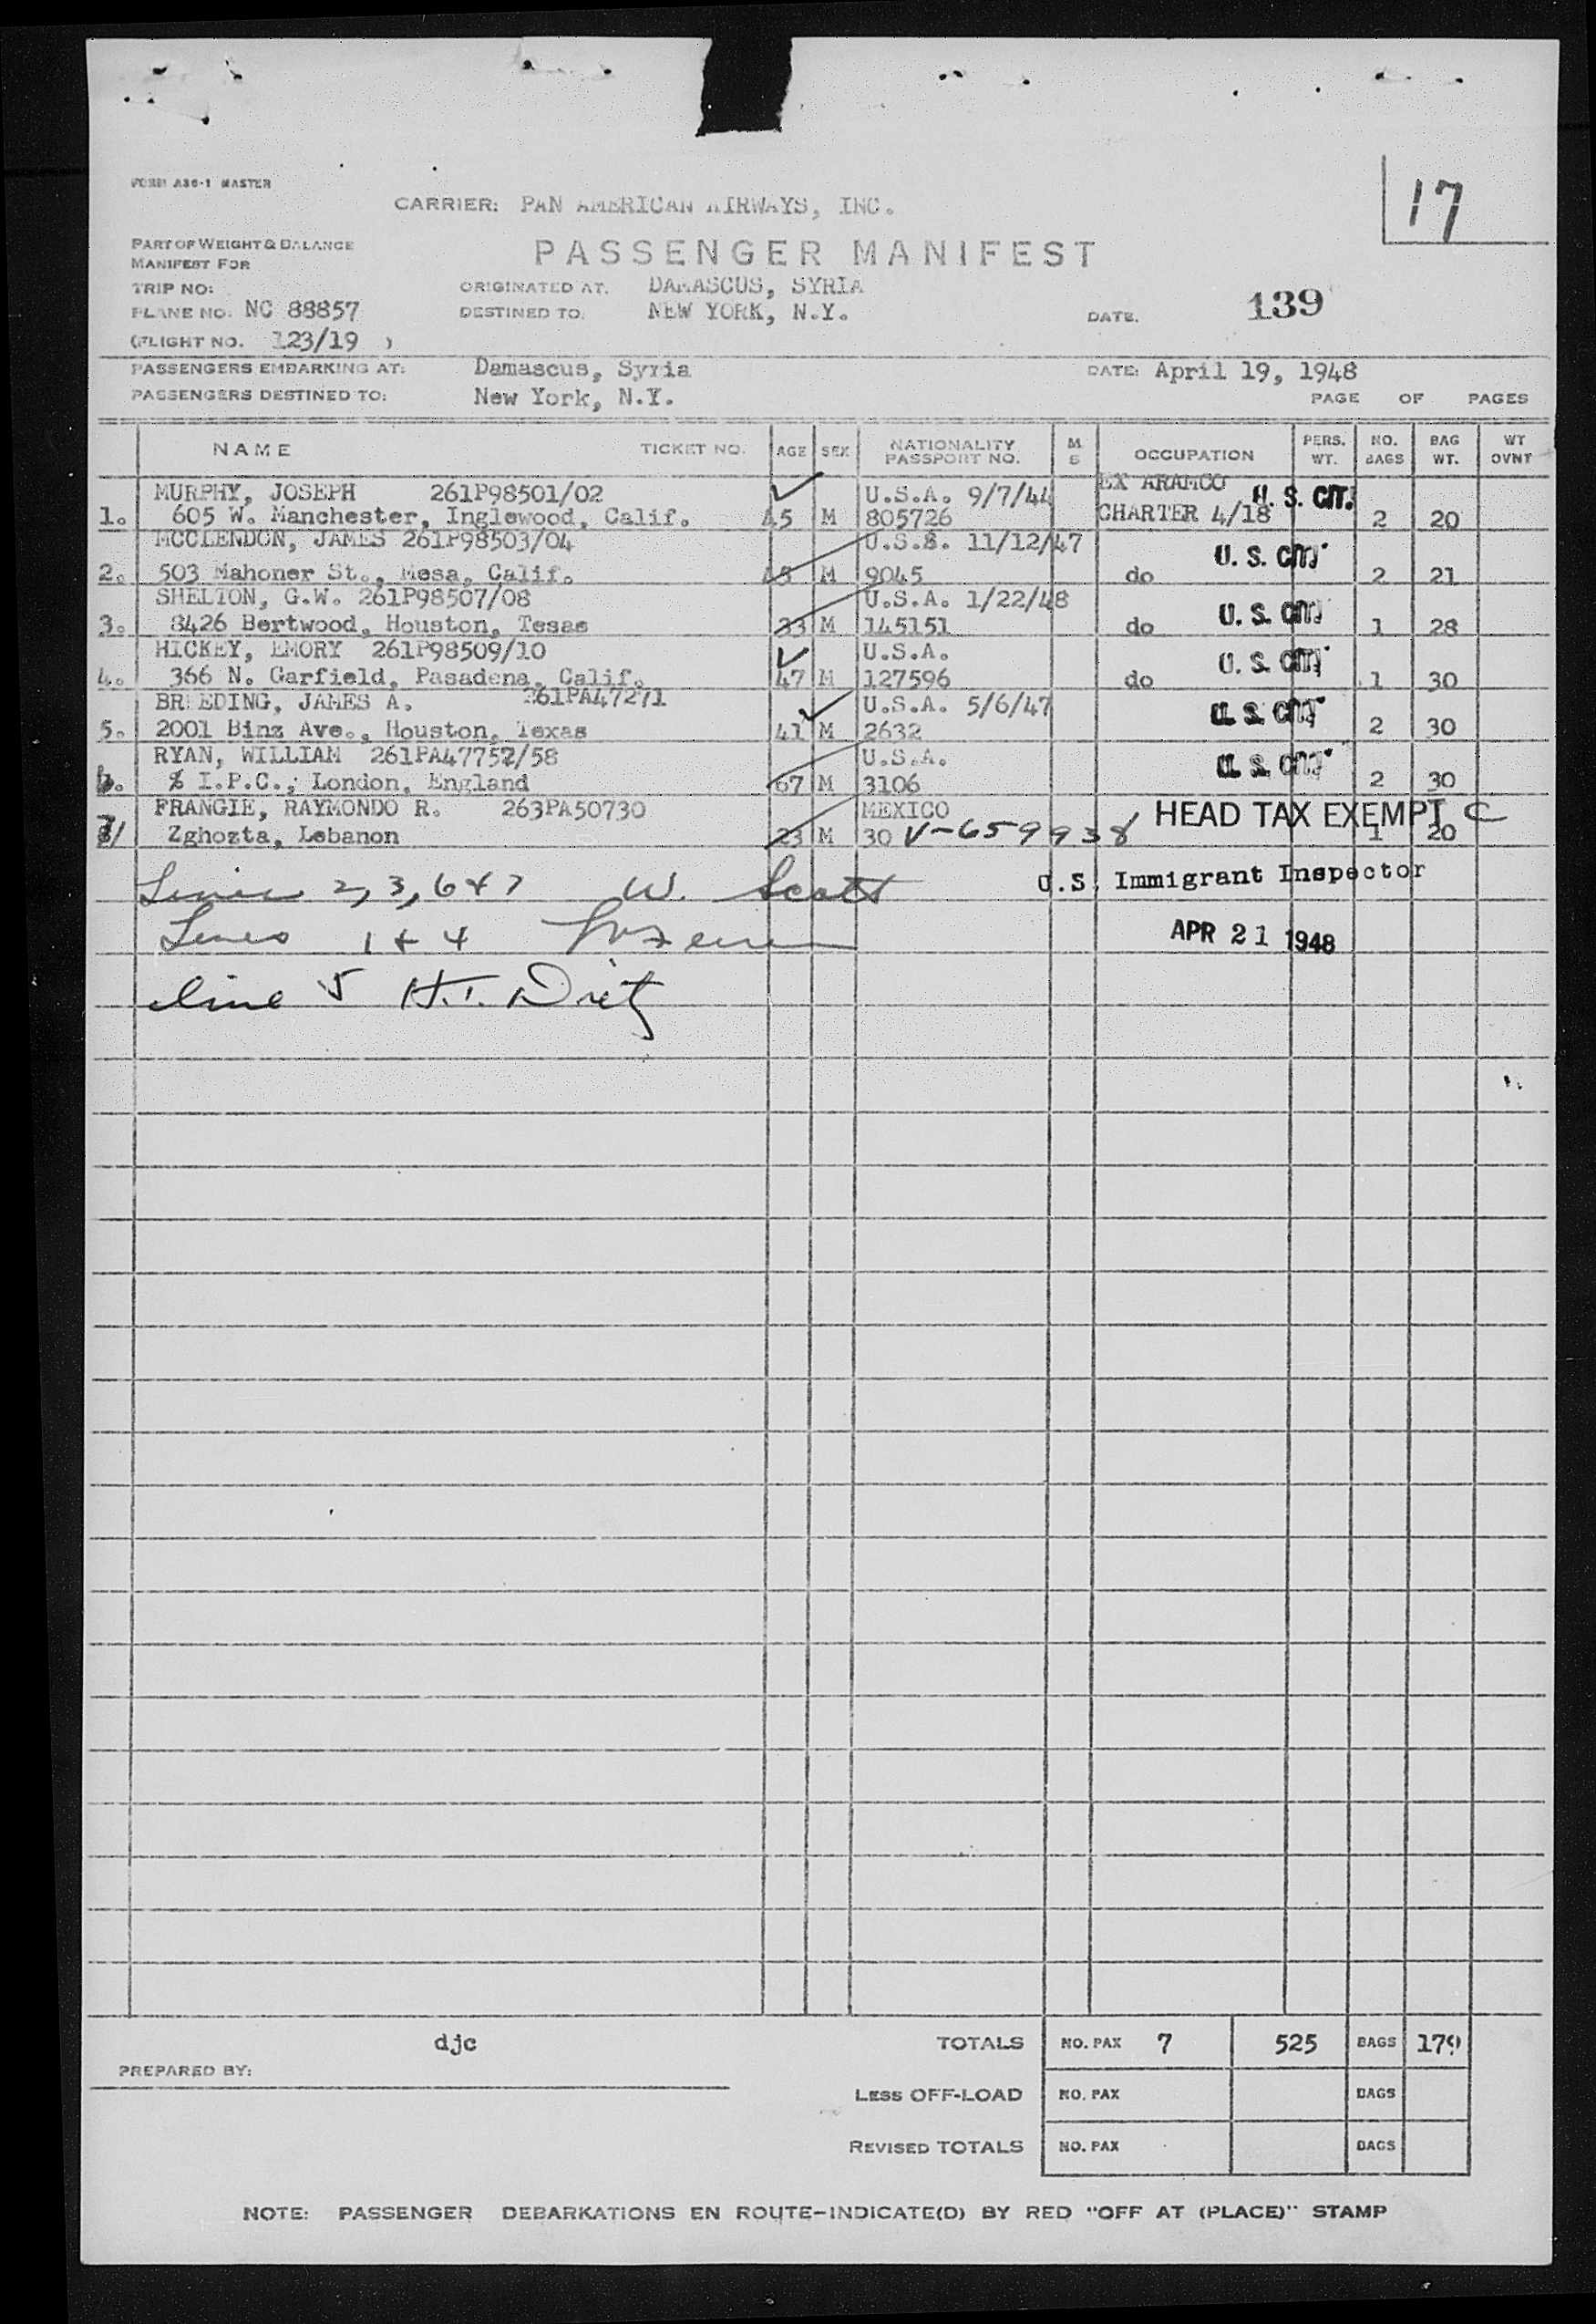 FORM A36-1 MASTER
17
CARRIER: PAN AMERICAN AIRWAYS, INC.
PART OF WEIGHT & BALANCE
MANIFEST FOR
PASSENGER MANIFEST
TRIP NO:
ORIGINATED AT. DAMASCUS, SYRIA
PLANE NO. NC 88857
DESTINED TO. NEW YORK, N.Y.
DATE. 139
(FLIGHT NO. 123/19 )
PASSENGERS EMBARKING AT: Damascus, Syria DATE: April 19, 1948
PASSENGERS DESTINED TO: New York, N.Y. PAGE OF PAGES
NAME TICKET NO. AGE SEX NATIONALITY PASSPORT NO. M S OCCUPATION PERS. WT. NO. BAGS BAG WT. WT OVNT
MURPHY, JOSEPH 261P98501/02 U.S.A. 9/7/44 EX ARAMCO U. S. CIT.
1. 605 W. Manchester, Inglewood, Calif. 45 M 805726 CHARTER 4/18 2 20
MCCLENDON, JAMES 261P98503/04 U.S.S. 11/12/47 U. S. CIT.
2. 503 Mahoner St., Mesa, Calif. M 9045 do 2 21
SHELTON, G.W. 261P98507/08 U.S.A. 1/22/48 U. S. CIT.
3. 8426 Bertwood, Houston, Tesas 33 M 145151 do 1 28
HICKEY, EMORY 261P98509/10 U.S.A. U. S. CIT.
4. 366 N. Garfield, Pasadena, Calif. 47 M 127596 do 1 30
BREEDING, JAMES A. 261PA47271 U.S.A. 5/6/47 U. S. CIT.
5. 2001 Binz Ave., Houston, Texas 41 M 2632 2 30
RYAN, WILLIAM 261PA47757/58 U.S.A. U. S. CIT.
6. % I.P.C., London, England 67 M 3106 2 30
FRANGIE, RAYMONDO R. 263PA50730 MEXICO HEAD TAX EXEMPT C
7 Zghozta, Lebanon 23 M 30 V-659938 1 20
Lines 2, 3, 6 & 7 W. Scott U.S. Immigrant Inspector
Lines 1 & 4 APR 21 1948
Line 5 H.T. Dietz
djc
PREPARED BY:
TOTALS NO. PAX 7 525 BAGS 179
LESS OFF-LOAD NO. PAX BAGS
REVISED TOTALS NO. PAX BAGS
NOTE: PASSENGER DEBARKATIONS EN ROUTE-INDICATE(D) BY RED "OFF AT (PLACE)" STAMP